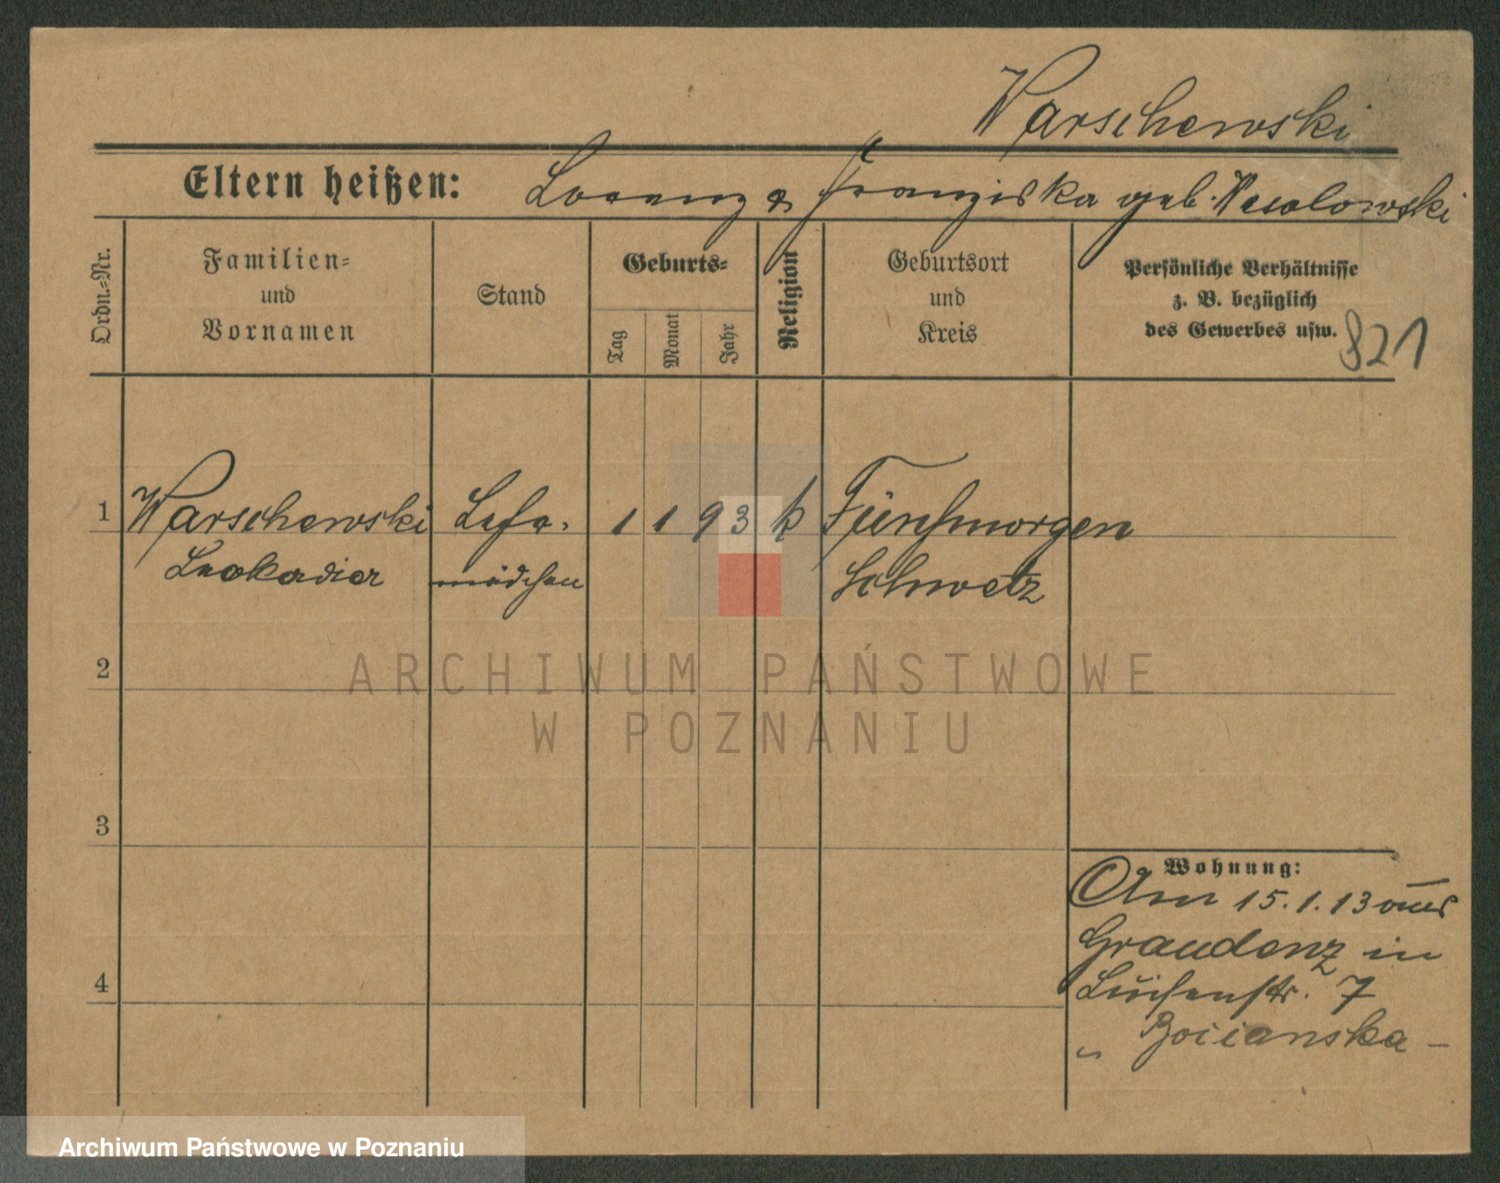 Warschewski
Eltern heißen: Lorenz & Franziska geb. Wesolowski
Ordn.-Nr.
Familien-
und
Vornamen
Stand
Geburts-
Tag
Monat
Jahr
Religion
Geburtsort
und
Kreis
Persönliche Verhältnisse
z. B. bezüglich
des Gewerbes usw.
821
1 Warschewski 1 1 93 k Fünfmorgen
Leokadia mädchen Schwetz
2
ARCHIWUM PAŃSTWOWE
W POZNANIU
3
Wohnung:
Am 15.1.13 aus
Graudenz in
4
7
„ Bocianska –
Archiwum Państwowe w Poznaniu